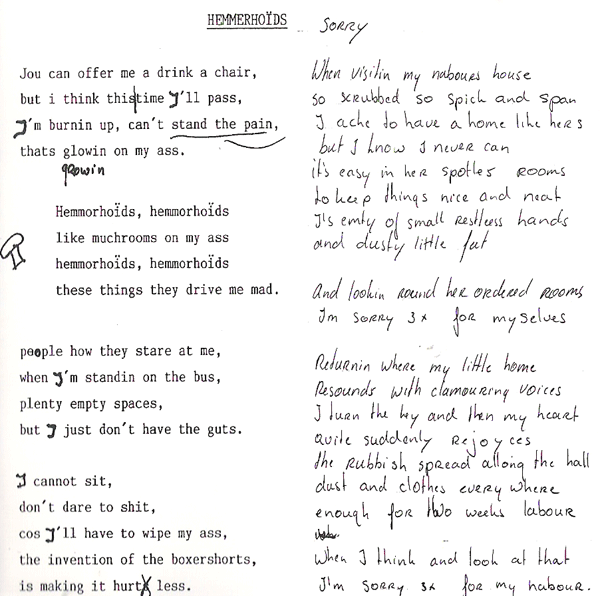 HEMMERHOÏDS
Jou can offer me a drink a chair,
but i think this time J'll pass,
J'm burnin up, can't stand the pain,
thats glowin on my ass.
growin
Hemmorhoïds, hemmorhoïds
like muchrooms on my ass
hemmorhoïds, hemmorhoïds
these things they drive me mad.
people how they stare at me,
when J'm standin on the bus,
plenty empty spaces,
but J just don't have the guts.
J cannot sit,
don't dare to shit,
cos J'll have to wipe my ass,
the invention of the boxershorts,
is making it hurt less.
SORRY
When visitin my nabours house
so scrubbed so spick and span
I ache to have a home like hers
but I know I never can
it's easy in her spotles rooms
to keep things nice and neat
J's emty of small restless hands
and dusty little feet
And lookin round her ordered rooms
I'm sorry 3x for myselves
Returnin where my little home
Resounds with clamouring voices
I turn the key and then my heart
quite suddenly rejoyces
the rubbish spread allong the hall
dust and clothes everywhere
enough for two weeks labour
When I think and look at that
I'm sorry 3x for my nabour.